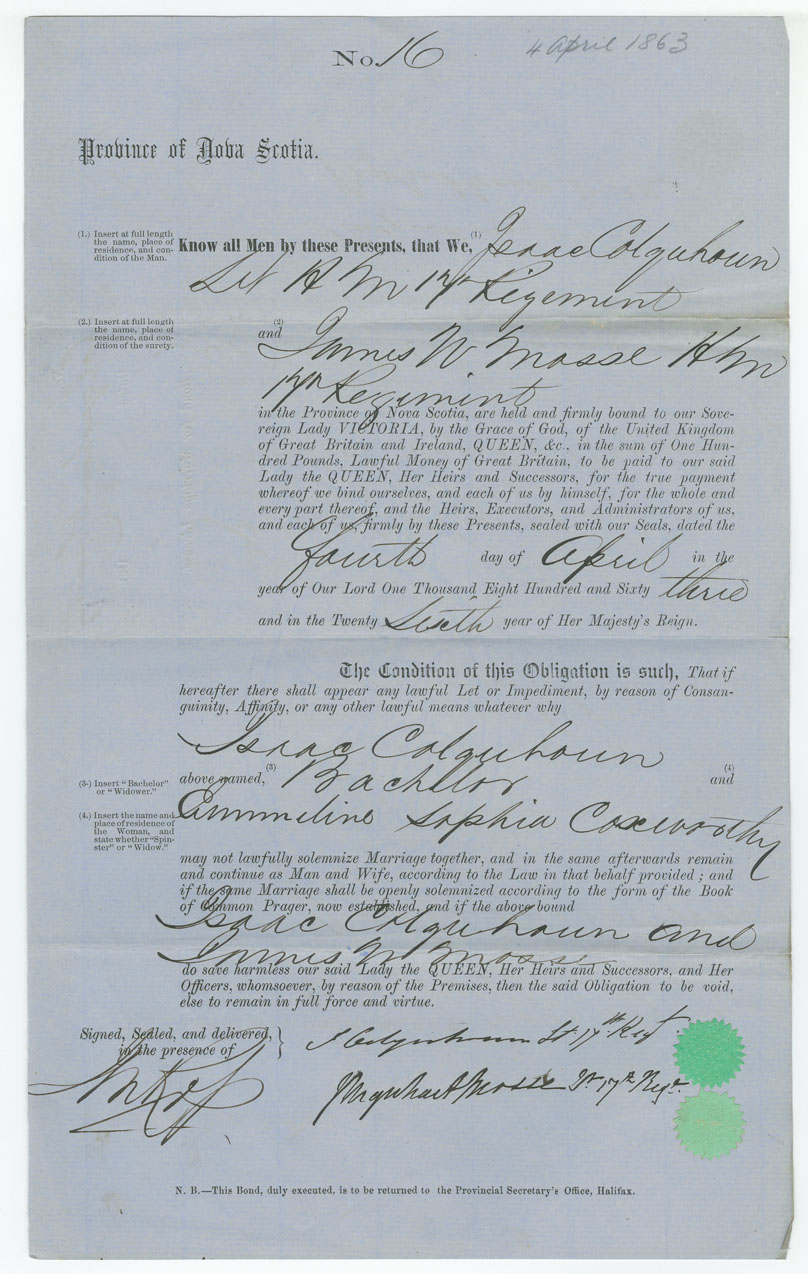 No. 16
4 April 1863
Province of Nova Scotia.
(1.) Insert at full length
the name, place of
residence, and con-
dition of the Man.
Know all Men by these Presents, that We, (1) Isaac Colquhoun
Lt H M 17th Regiment
(2.) Insert at full length
the name, place of
residence, and con-
dition of the surety.
(2)
and James W Mosse H M
17th Regiment
in the Province of Nova Scotia, are held and firmly bound to our Sove-
reign Lady VICTORIA, by the Grace of God, of the United Kingdom
of Great Britain and Ireland, QUEEN, &c. in the sum of One Hun-
dred Pounds, Lawful Money of Great Britain, to be paid to our said
Lady the QUEEN, Her Heirs and Successors, for the true payment
whereof we bind ourselves, and each of us by himself, for the whole and
every part thereof, and the Heirs, Executors, and Administrators of us,
and each of us, firmly by these Presents, sealed with our Seals, dated the
fourth day of April in the
year of Our Lord One Thousand Eight Hundred and Sixty three
and in the Twenty Sixth year of Her Majesty's Reign.
The Condition of this Obligation is such, That if
hereafter there shall appear any lawful Let or Impediment, by reason of Consan-
guinity, Affinity, or any other lawful means whatever why
Isaac Colquhoun
(3.) Insert "Bachelor"
or "Widower."
above named, (3) Bachelor and (4)
(4.) Insert the name and
place of residence of
the Woman, and
state whether "Spin-
ster" or "Widow."
Emmeline Sophia Coxworthy
may not lawfully solemnize Marriage together, and in the same afterwards remain
and continue as Man and Wife, according to the Law in that behalf provided ; and
if the same Marriage shall be openly solemnized according to the form of the Book
of Common Prager, now established, and if the above bound
Isaac Colquhoun and
James W Mosse
do save harmless our said Lady the QUEEN, Her Heirs and Successors, and Her
Officers, whomsoever, by reason of the Premises, then the said Obligation to be void,
else to remain in full force and virtue.
Signed, Sealed, and delivered,
in the presence of
I Colquhoun Lt 17th Regt
Mosse Lt. 17th Regt.
N. B.—This Bond, duly executed, is to be returned to the Provincial Secretary's Office, Halifax.